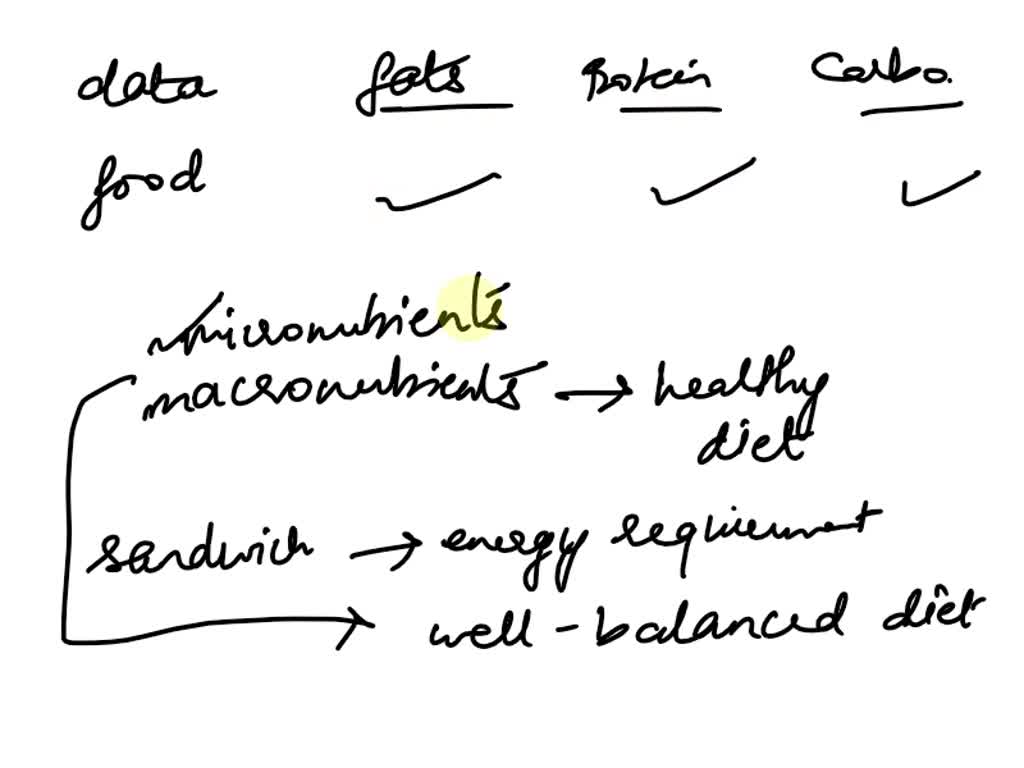 data fats Protein Carbo.
food
micronutrients
macronutrients → healthy
diet
sandwich → energy requirement
well-balanced diet